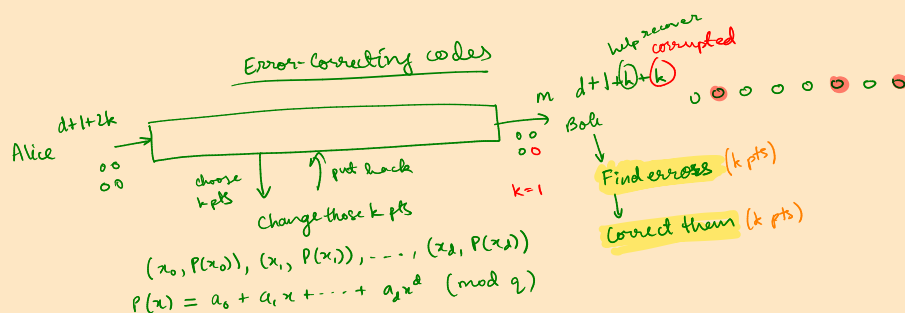 Error-Correcting codes
help recover
corrupted
d+1+k+k
m
d+1+2k
Alice
Bob
choose
k pts
put back
Change those k pts
k=1
Find errors (k pts)
Correct them (k pts)
(x₀, P(x₀)), (x₁, P(x₁)), ----, (x_d, P(x_d))
P(x) = a₀ + a₁x + ---- + a_d x^d (mod q)